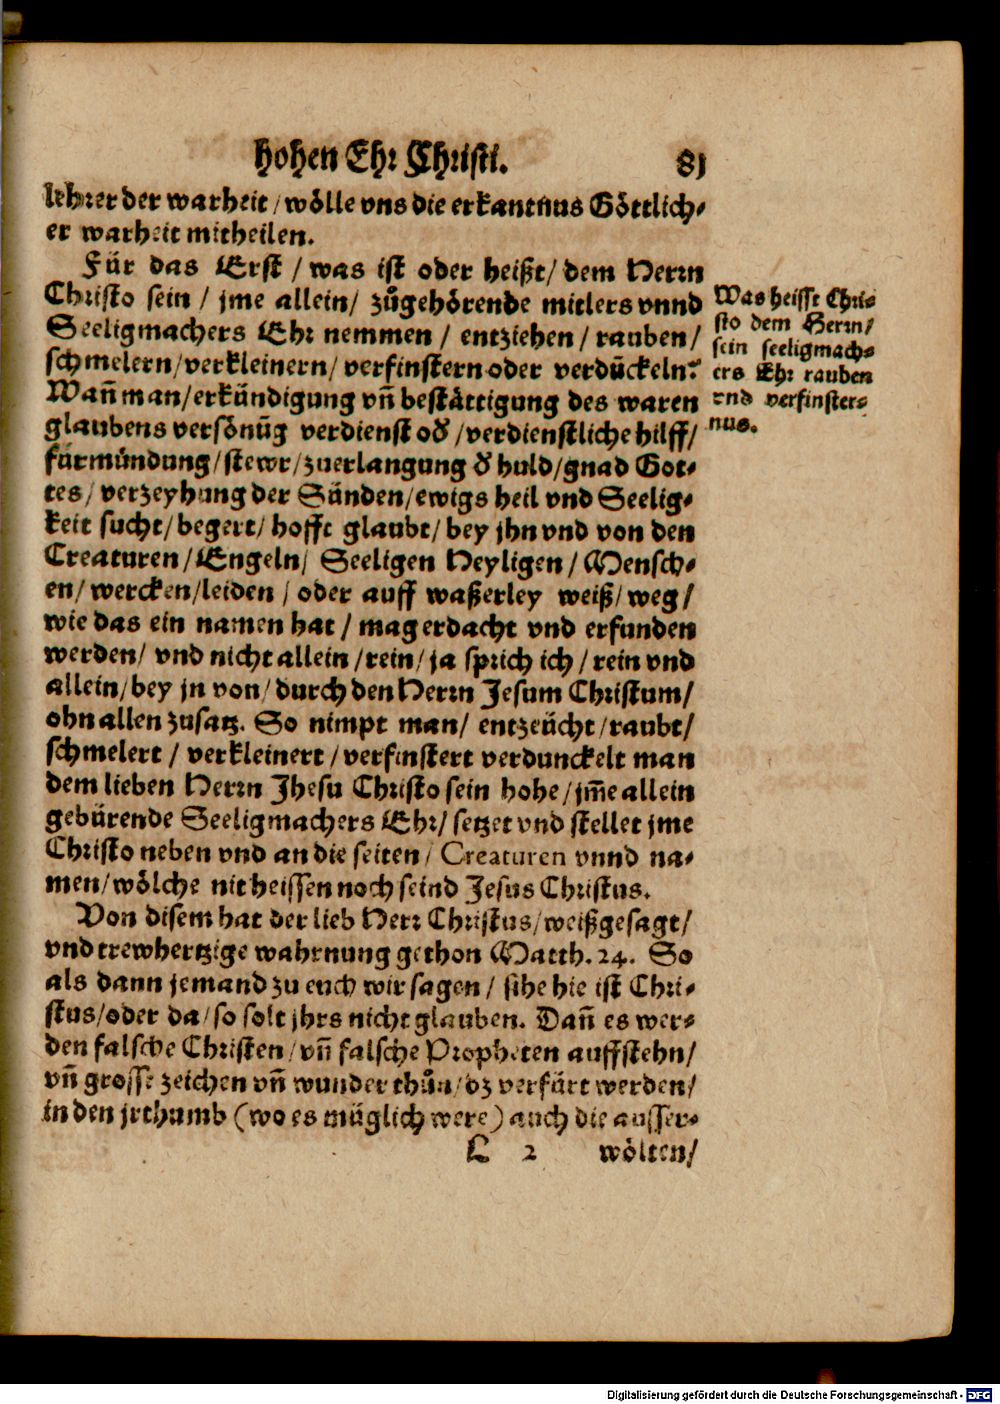 hohen Ehr Christi. 81
lehrer der warheit/ wölle vns die erkantnus Göttlich-
er warheit mitheilen.
Für das Erst/ was ist oder heißt/ dem Herrn
Christo sein/ jme allein/ zůgehörende mitlers vnnd
Seeligmachers Ehr nemmen/ entziehen/ rauben/
schmelern/ verkleinern/ verfinstern oder verdückeln?
Wañ man/ erkündigung vñ bestättigung des waren
glaubens versönũg verdienst oď/ verdienstliche hilff/
fürmündung/ stewr/ zuerlangung ď huld/ gnad Got-
tes/ verzeyhung der Sünden/ ewigs heil vnd Seelig-
keit sucht/ begert/ hofft glaubt/ bey jhn vnd von den
Creaturen/ Engeln/ Seeligen Heyligen/ Mensch-
en/ wercken/ leiden/ oder auff waßerley weiß/ weg/
wie das ein namen hat/ mag erdacht vnd erfunden
werden/ vnd nicht allein/ rein/ ja sprich ich/ rein vnd
allein/ bey jn von/ durch den Herrn Jesum Christum/
ohn allen zusatz. So nimpt man/ entzeücht/ raubt/
schmelert/ verkleinert/ verfinstert verdunckelt man
dem lieben Herrn Jhesu Christo sein hohe/ jm̃e allein
gebürende Seeligmachers Ehr/ setzet vnd stellet jme
Christo neben vnd an die seiten/ Creaturen vnnd na-
men/ wölche nit heissen noch seind Jesus Christus.
Von disem hat der lieb Herr Christus/ weißgesagt/
vnd trewhertzige wahrnung gethon Matth. 24. So
als dann jemand zu euch wir sagen/ sihe hie ist Chri-
stus/ oder da/ so solt jhrs nicht glauben. Dañ es wer-
den falsche Christen/ vñ falsche Propheten auffstehn/
vñ grosse zeichen vñ wunder thůn/ dz verfürt werden/
in den jrthumb (wo es müglich were) auch die ausser-
L 2 wölten/
Was heisst Chri-
sto dem Herrn/
sein seeligmach-
ers Ehr rauben
vnd verfinster-
nus.
Digitalisierung gefördert durch die Deutsche Forschungsgemeinschaft - DFG